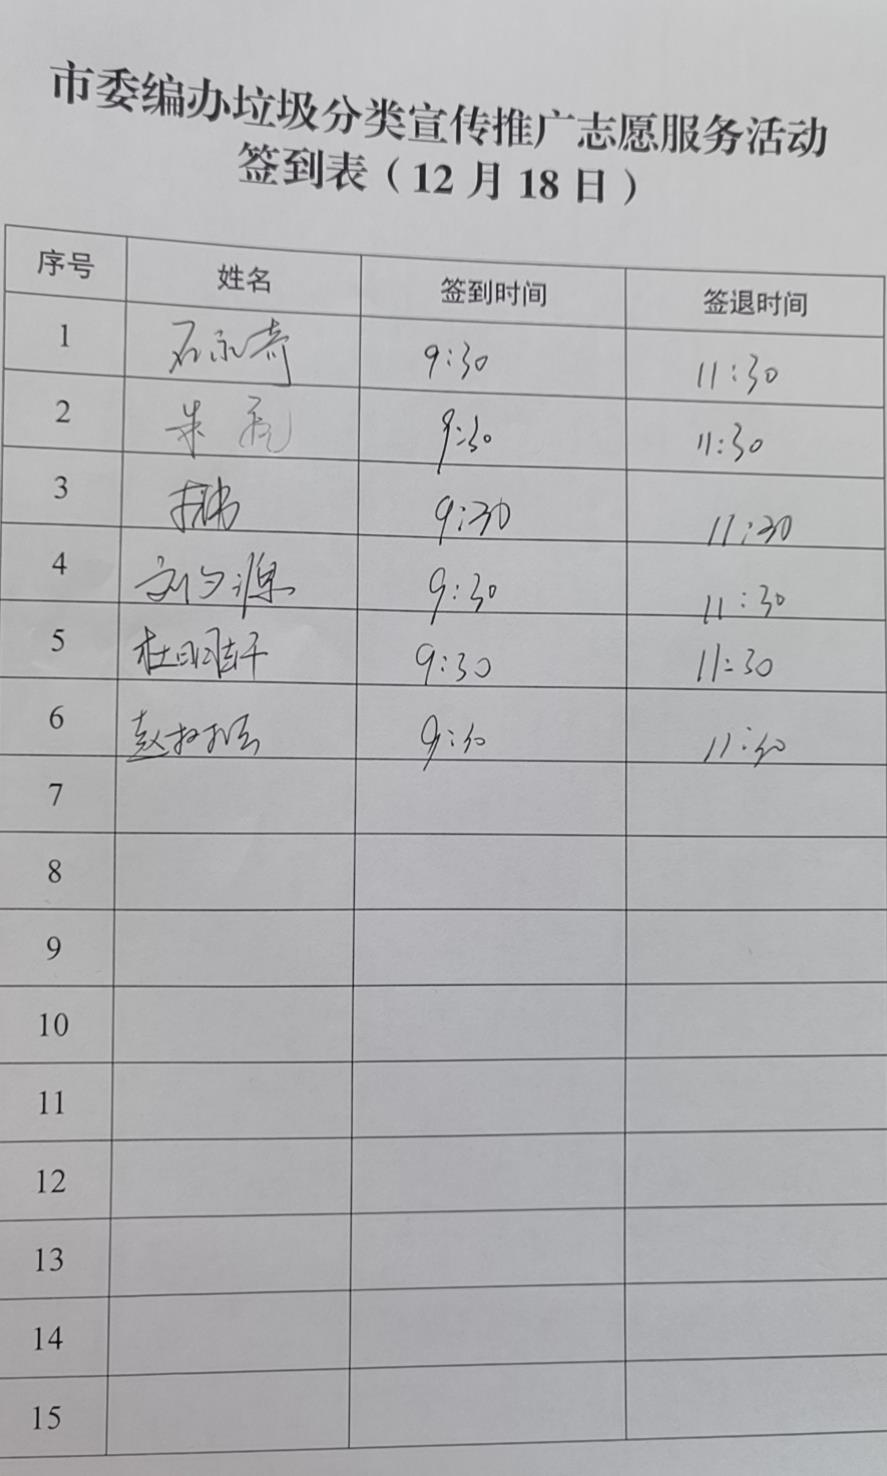 市委编办垃圾分类宣传推广志愿服务活动
签到表（12月18日）
序号 姓名 签到时间 签退时间
1 石永奇 9:30 11:30
2 朱 9:30 11:30
3 9:30 11:30
4 刘夕源 9:30 11:30
5 9:30 11:30
6 赵 9:30 11:30
7
8
9
10
11
12
13
14
15